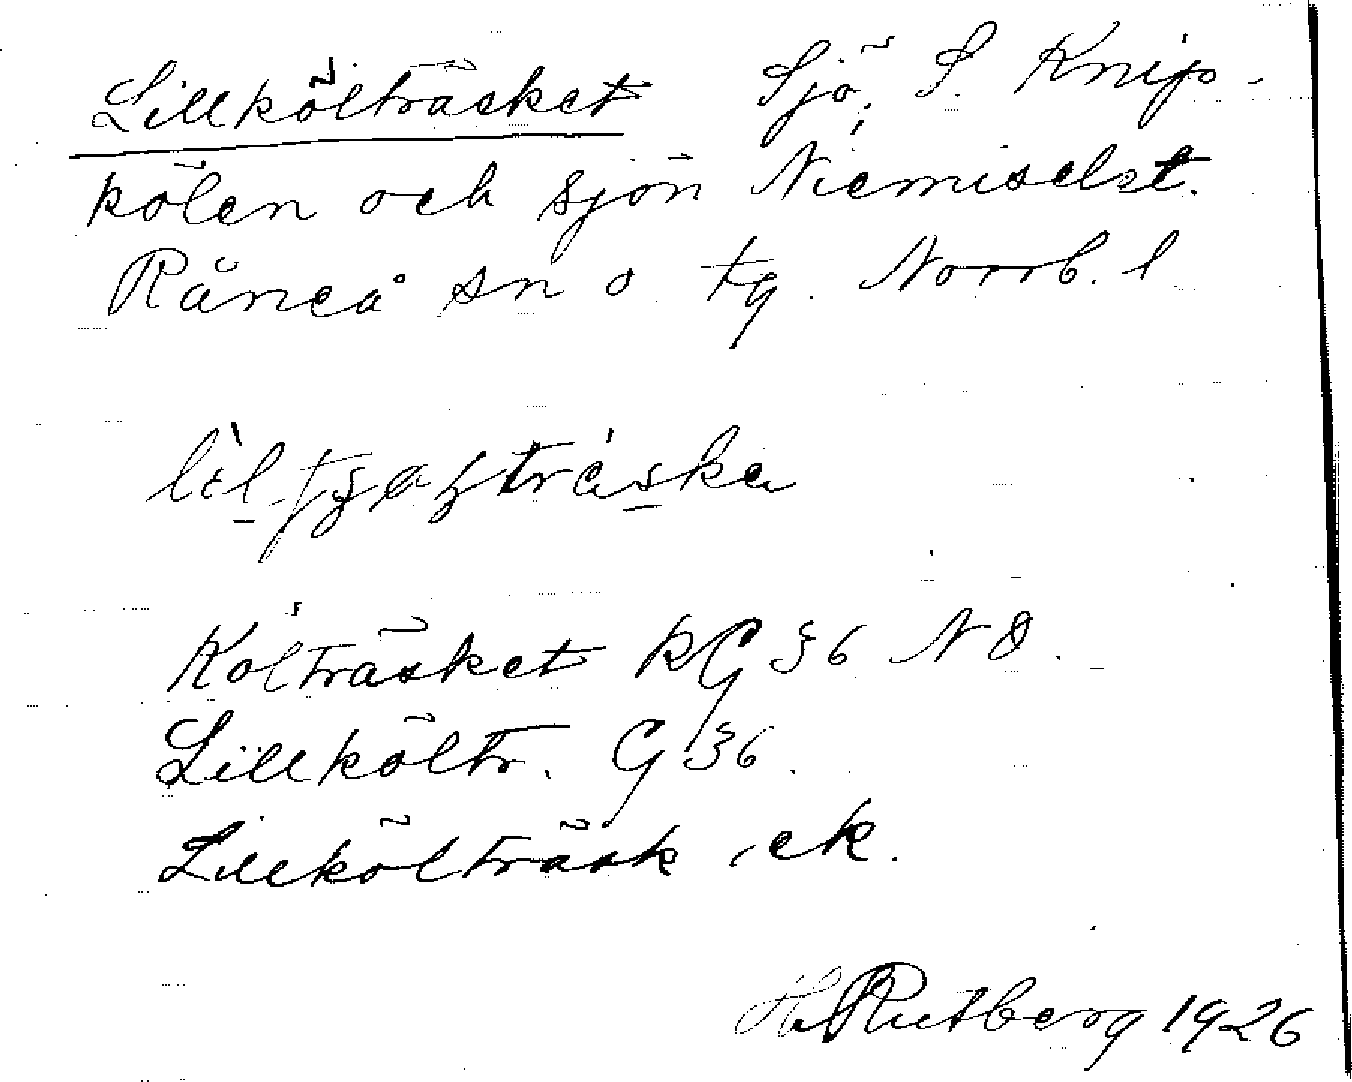 Lillkölträsket Sjö, S. Knip-
kölen och sjön Niemiselet.
Råneå sn o tg. Norrb. l
Költräsket RG 36 NO.
Lillköltr. G 36.
Lillkölträsk, ek.
H. Rutberg 1926